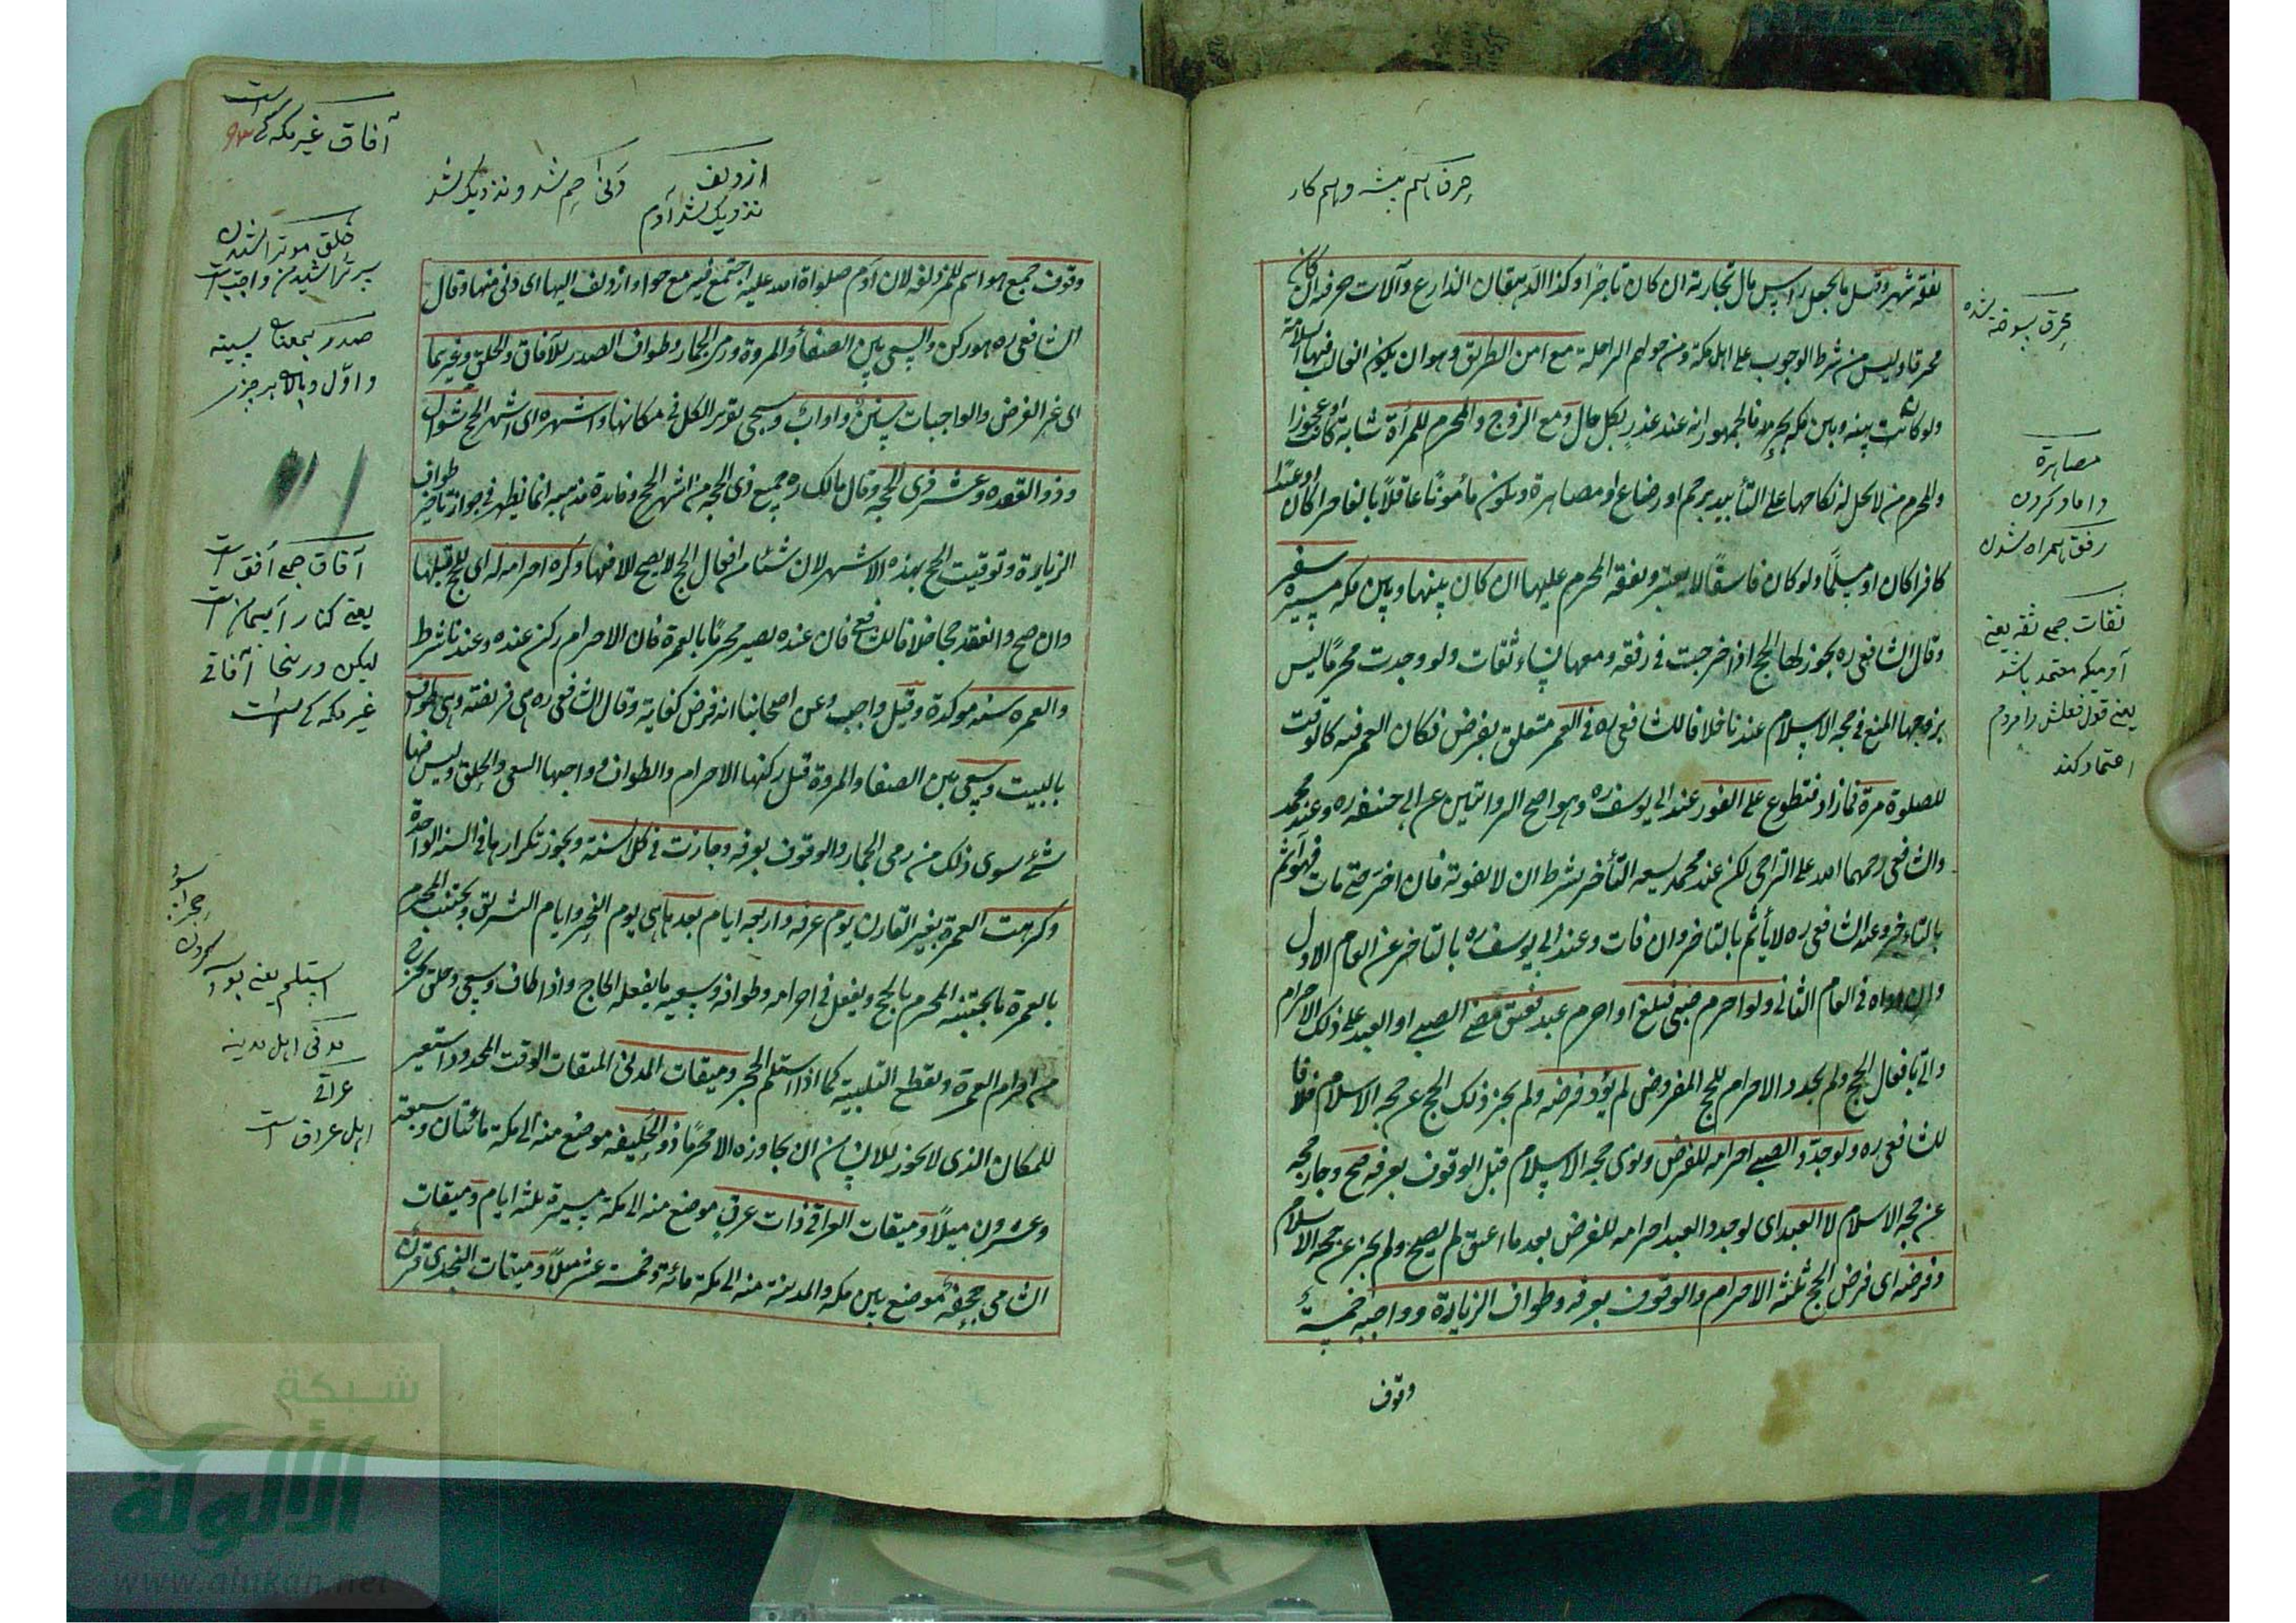 حرفه اسم پیشه و اسم کار
نفقة شهر وقيل ما يجعل راس مال تجارته ان كان تاجرًا وكذا الدهقان الذارع وآلات حرفته ان كان
محترفا وليس من شرط الوجوب على اهل مكة ومن حولهم الراحلة مع امن الطريق وهو ان يكون الغالب فيها السلامة
ولو كانت بينه وبين مكة بحر فالجمهور انه عند عذر بكل حال ومع الزوج والمحرم للمرأة شابة كانت او عجوزا
والمحرم من لا يحل له نكاحها على التأبيد برحم او رضاع او مصاهرة ويكون مأمونًا عاقلًا بالغا حرا كان او عبدًا
كافرا كان او مسلمًا ولو كان فاسقًا لا يعتبر ونفقة المحرم عليها ان كان بينها وبين مكة مسيرة سفر
وقال الشافعى ره يجوز لها الحج اذا خرجت فى رفقة ومعها نساء ثقات ولو وجدت محرمًا ليس
بزوجها المنع فى حجة الاسلام عندنا خلافا للشافعى ره فى العمر متعلق بفرض فكان العمر فيه كالوقت
للصلوة مرة فما زاد فتطوع على الفور عند ابى يوسف ره وهو اصح الروايتين عن ابى حنيفة ره وعند محمد
والشافعى رحمهما الله على التراخى لكن عند محمد يسعه التأخير بشرط ان لا يفوته فان اخر حتى مات فهو آثم
بالتاخير وعند الشافعى ره لا يأثم بالتاخير وان فات وعند ابى يوسف ره بالتاخير عن العام الاول
وان اداه فى العام الثانى ولو احرم صبى فبلغ او احرم عبد فعتق فمضى الصبى او العبد على ذلك الاحرام
واتى بافعال الحج ولم يجدد الاحرام للحج المفروض لم يؤد فرضه ولم يجز ذلك الحج عن حجة الاسلام خلافا
للشافعى ره ولو جدّد الصبى احرامه للفرض ونوى حجة الاسلام قبل الوقوف بعرفة صح وجاز حجه
عن حجة الاسلام لا العبد اى لو جدد العبد احرامه للفرض بعد ما اعتق لم يصح ولم يجز عن حجة الاسلام
وفرضه اى فرض الحج ثلثة الاحرام والوقوف بعرفة وطواف الزيارة وواجبه خمسة
وقوف
محرق سوخته شده
مصاهرة
داماد کردن
رفق همراه شدن
ثقات جمع ثقه یعنی
آدمیکه معتمد باشد
یعنی قول فعلش را مردم
اعتماد کند
ازدلف
نزدیک شد آدم
دنى اى جم شد و نزدیک شد
وقوف جمع هو اسم للمزدلفة لان آدم صلواة الله عليه اجتمع فيه مع حوا وازدلف اليها اى دنى منها وقال
الشافعى ره هو ركن والسعى بين الصفا والمروة ورمى الجمار وطواف الصدر للآفاقى والحلق وغيرهما
اى غير الفرض والواجبات سنن وآداب وسيجى تقرير الكل فى مكانها واشهره اى اشهر الحج شوال
وذو القعده وعشر ذى الحجة وقال مالك ره جميع ذى الحجة من اشهر الحج وفائدة مذهبه انما يظهر فى جواز تاخير طواف
الزيارة وتوقيت الحج بهذه الاشهر لان شئا من افعال الحج لا يصح الا فيها وكره احرامه له اى للحج قبلها
وان صح وانعقد حجا خلافا للشافعى فان عنده يصير محرمًا بالعمرة فان الاحرام ركن عنده وعندنا شرط
والعمره سنة موكدة وقيل واجب وعن اصحابنا انه فرض كفاية وقال الشافعى ره هى فريضة وهى طواف
بالبيت وسعى بين الصفا والمروة قيل ركنها الاحرام والطواف وواجبها السعى والحلق وليس فيها
شئ سوى ذلك من رمى الجمار والوقوف بعرفة وجازت فى كل السنة ويجوز تكرارها فى السنة الواحدة
وكرهت العمرة بغير القارن يوم عرفة واربعة ايام بعدها هى يوم النحر وايام التشريق ويجتنب المحرم
بالعمرة ما يجتنبه المحرم بالحج ويفعل فى احرامه وطوافه وسعيه ما يفعله الحاج واذا طاف وسعى وحلق يخرج
من احرام العمرة ويقطع التلبية كما اذا استلم الحجر وميقات المدنى الميقات الوقت المحدود استعير
للمكان الذى لا يجوز للانسان ان يجاوزه الا محرمًا ذو الحليفة موضع منه الى مكة مائتان وسبعة
وعشرون ميلًا وميقات العراقى ذات عرق موضع منه الى مكة مسيرة ثلثة ايام وميقات
الشامى جحفة موضع بين مكه والمدينة منه الى مكة مائة وخمسة عشر ميلًا وميقات النجدى قرن
آفاق غیر مکه کی است
حلق مو تراشیدن
سر تراشیدن واجبست
صدر بمعنا سینه
و اول و بالا هر چیز
آفاق جمع أفق است
یعنی کنار آسمان است
لیکن درینجا آفاقى
غیر مکه کی است
استلم یعنی بو
مدنی اهل مدینه
عراقی
اهل عراق است
شبكة
الألوكة
www.alukah.net